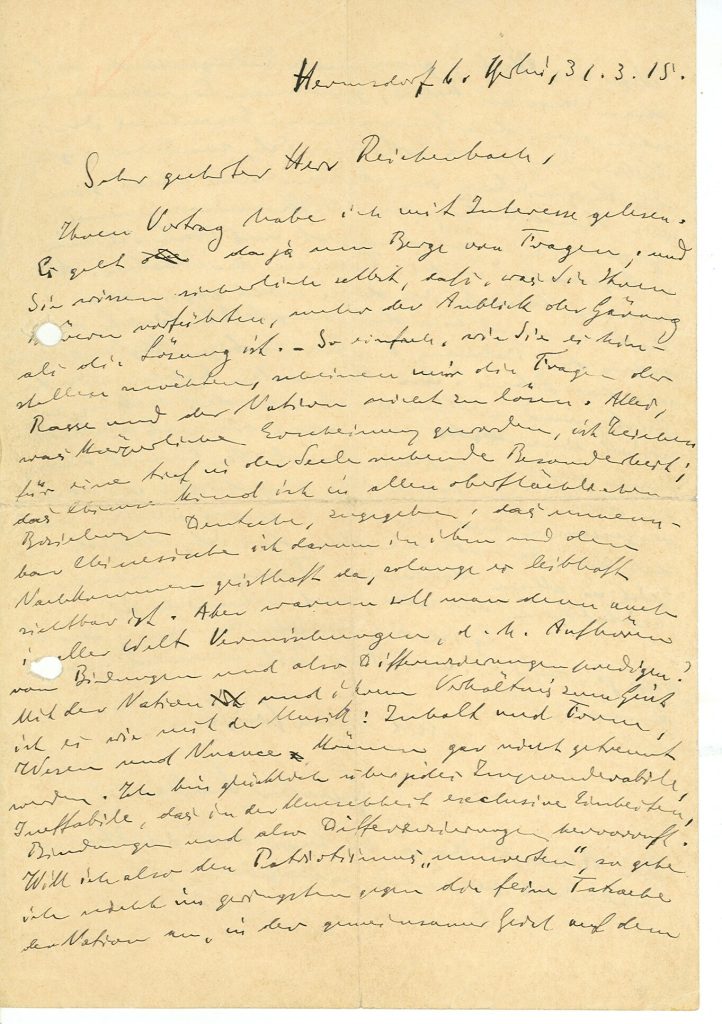 Hermsdorf b. Berlin, 31.3.15.
Sehr geehrter Herr Reichenbach,
Ihren Vortrag habe ich mit Interesse gelesen.
Es gilt da ja nun Berge von Fragen, und
Sie wissen sicherlich selbst, daß, was Sie Ihren
Hörern vorführten, mehr der Anblick der Gärung
als die Lösung ist. – So einfach, wie Sie es hin-
stellen möchten, scheinen mir die Fragen der
Rasse und der Nation nicht zu lösen. Alles,
was körperliche Erscheinung geworden, ist Zeichen
für eine tief in der Seele ruhende Besonderheit;
das Kind ist in allen oberflächlichen
Beziehungen Deutsche, zugegeben; das unnenn-
bar Chinesische ist darum in ihm und den
Nachkommen geisthaft da, solange es leibhaft
sichtbar ist. Aber warum soll man denn auch
in aller Welt Vermischungen, d.h. Aufhören
von Bindungen und also Differenzierungen predigen?
Mit der Nation und ihrem Verhältnis zum Geist
ist es wie mit der Musik: Inhalt und Form,
Wesen und Nuance können gar nicht getrennt
werden. Ich bin glücklich über jedes Imponderabile,
Ineffabile, das in der Menschheit exclusive Einheiten,
Bindungen und also Differenzierungen hervorruft.
Will ich also den Patriotismus „umwerten", so gehe
ich nicht im geringsten gegen die feine Tatsache
der Nation an, in der gemeinsamer Geist auf dem